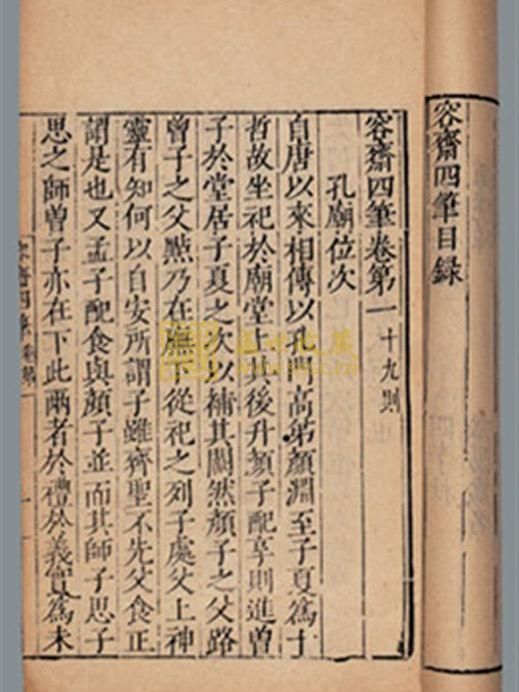 容齋四筆目録
容齋四筆卷第一 十九則
孔廟位次
自唐以來相傳以孔門高弟顏淵至子夏爲十
哲故坐祀於廟堂上其後升顏子配享則進曾
子於堂居子夏之次以補其闕然顏子之父路
曾子之父點乃在廡下從祀之列子處父上神
靈有知何以自安所謂子雖齊聖不先父食正
謂是也又孟子配食與顏子並而其師子思子
思之師曾子亦在下此兩者於禮於義實爲未